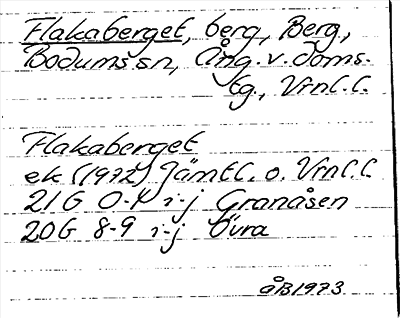 Flakaberget, berg, Berg,
Bodums sn, Ång. v. doms.
tg., Vrnl. l.
Flakaberget
ek (1972) Jämtl. o. Vrnl. l.
21G 0-1 i-j Granåsen
20G 8-9 i-j Övra
ÅB 1973